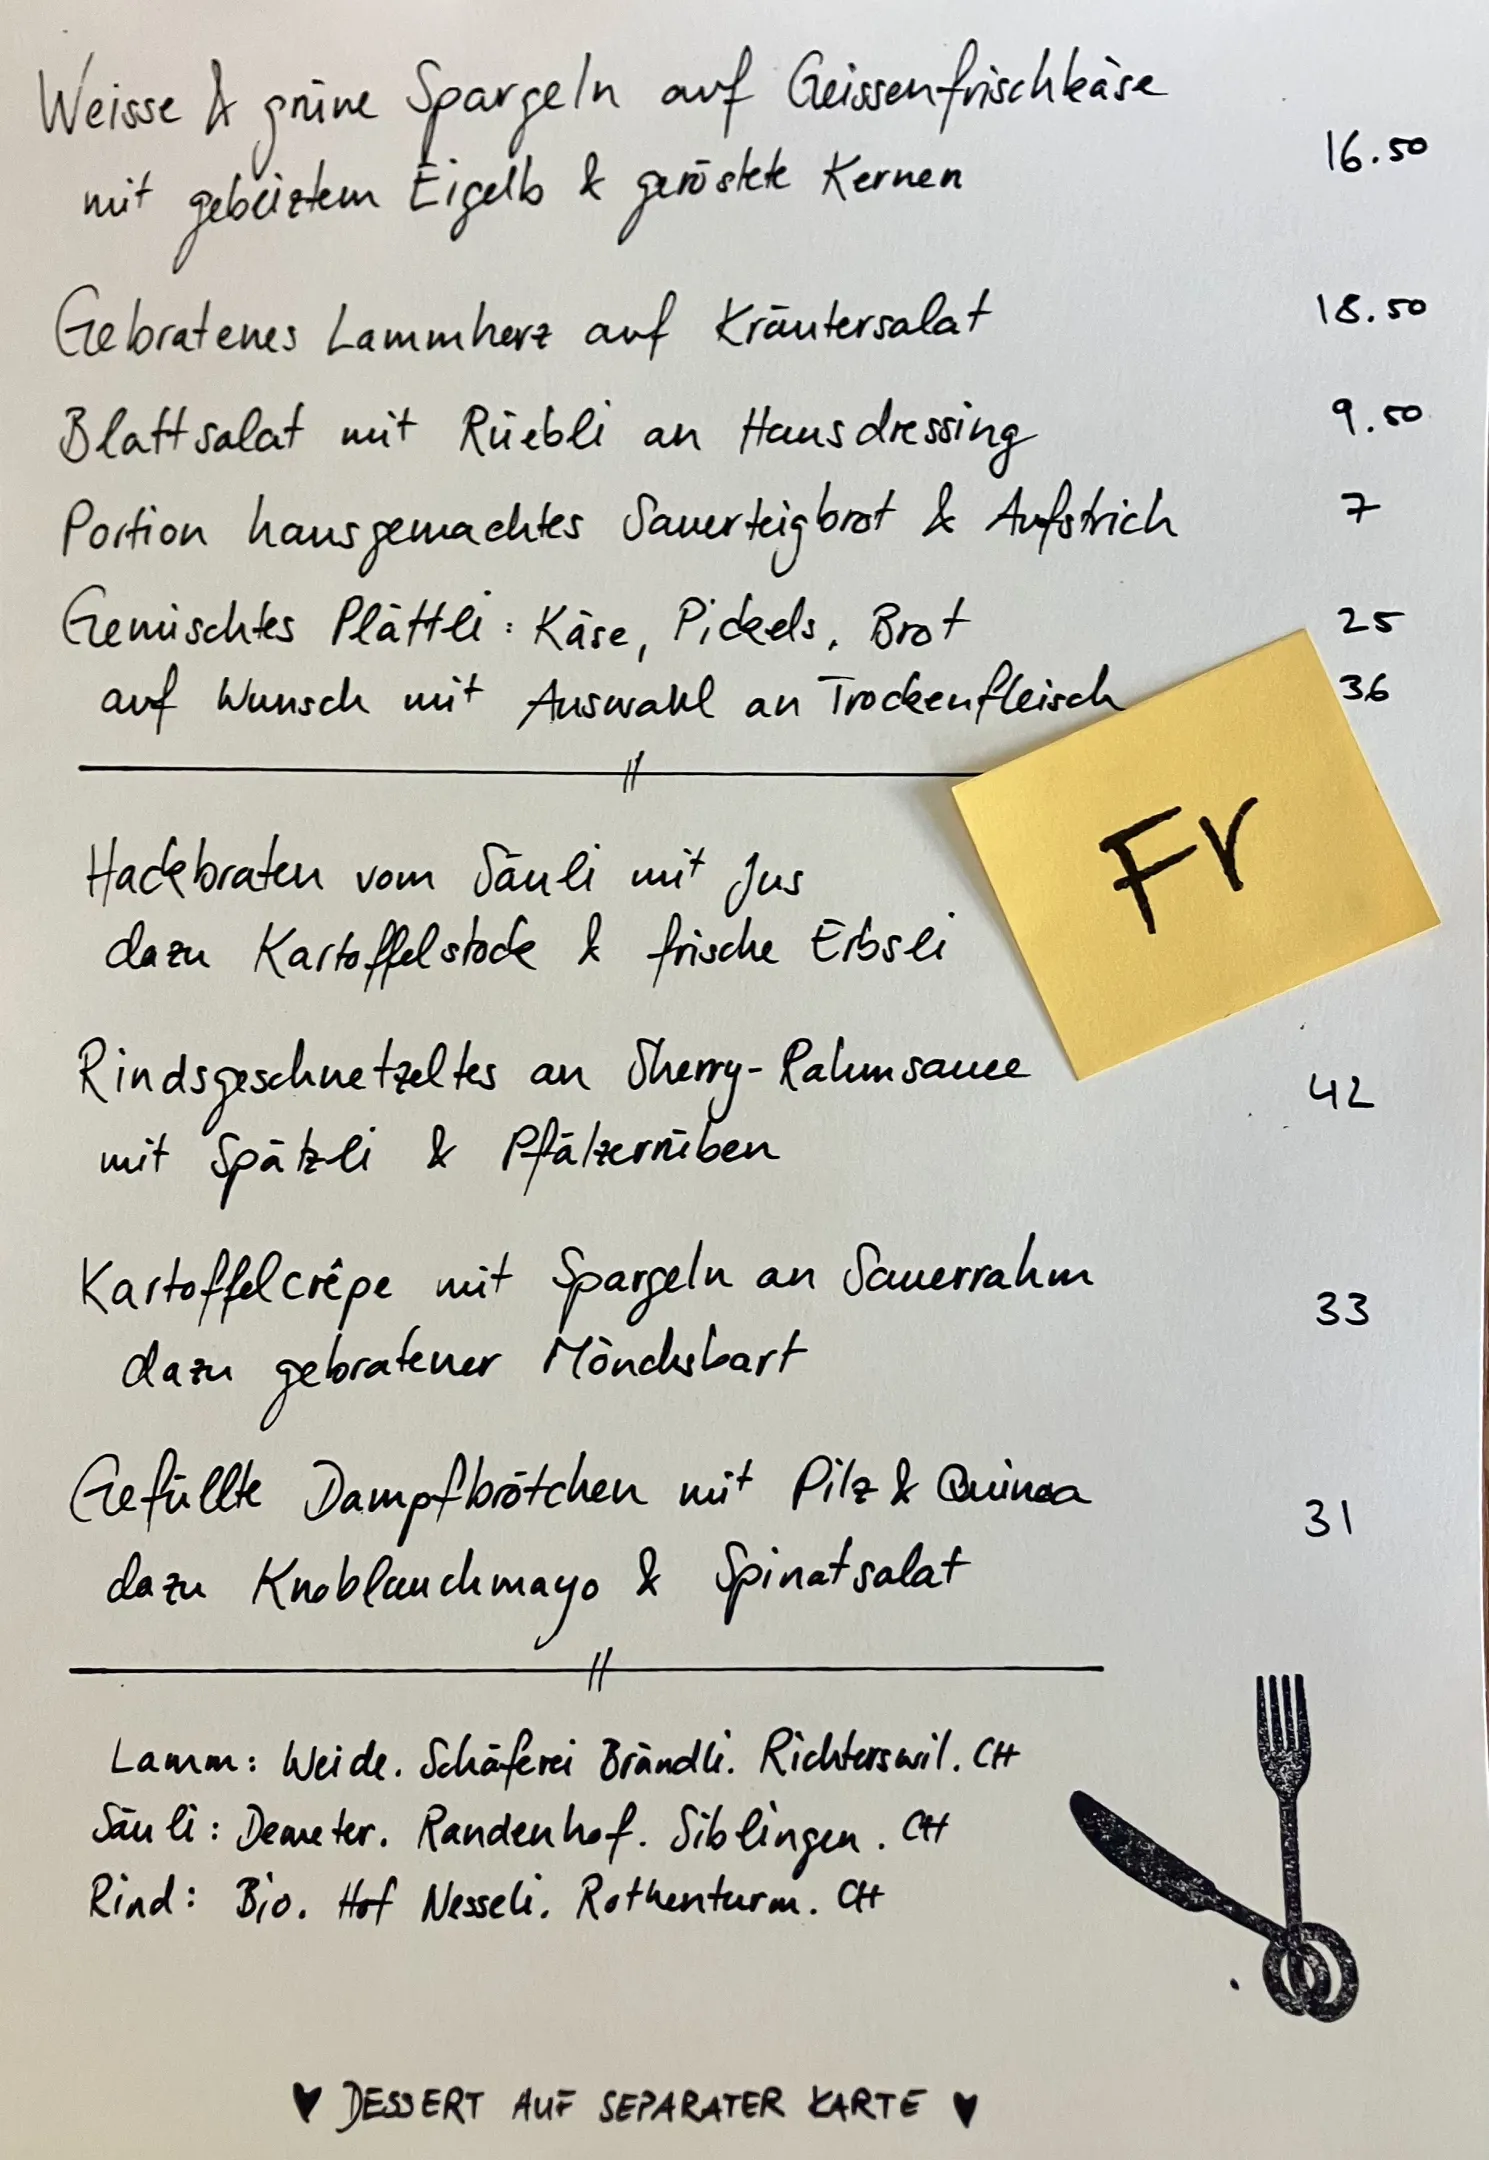 Weisse & grüne Spargeln auf Geissenfrischkäse
mit gebeiztem Eigelb & geröstete Kernen 16.50
Gebratenes Lammherz auf Kräutersalat 18.50
Blattsalat mit Rüebli an Hausdressing 9.50
Portion hausgemachtes Sauerteigbrot & Aufstrich 7
Gemischtes Plättli: Käse, Pickels, Brot 25
auf Wunsch mit Auswahl an Trockenfleisch 36
Fr
Hackbraten vom Säuli mit Jus
dazu Kartoffelstock & frische Erbsli
Rindsgeschnetzeltes an Sherry-Rahmsauce 42
mit Spätzli & Pfälzerrüben
Kartoffelcrêpe mit Spargeln an Sauerrahm 33
dazu gebratener Mönchsbart
Gefüllte Dampfbrötchen mit Pilz & Quinoa 31
dazu Knoblauchmayo & Spinatsalat
Lamm: Weide. Schäferei Brändli. Richterswil. CH
Säuli: Demeter. Randenhof. Siblingen. CH
Rind: Bio. Hof Nesseli. Rothenturm. CH
♥ DESSERT AUF SEPARATER KARTE ♥